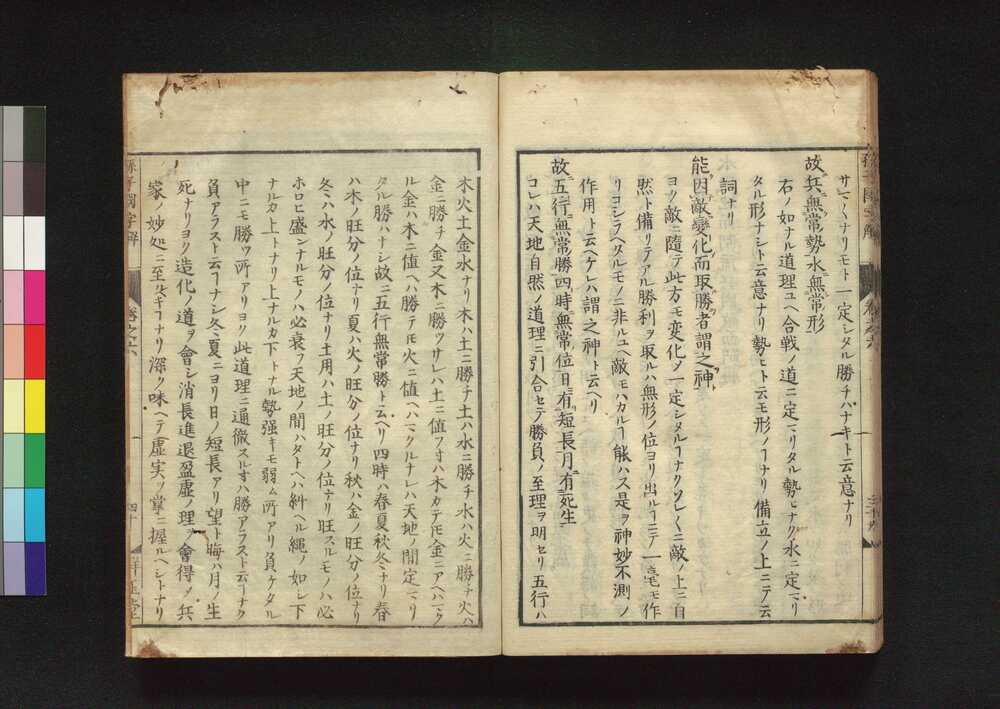 サマ〳〵ナリモト一定シタル勝チハナキト云意ナリ
故兵無常勢水無常形
右ノ如ナル道理ユヘ合戦ノ道ニ定マリタル勢ヒナク水ニ定マリ
タル形ナシト云意ナリ勢ヒト云モ形ノヿナリ備立ノ上ニテ云
詞ナリ
能因敵變化而取勝者謂之神
ヨク敵ニ隨テ此方モ変化ノ一定シタルヿナクソレ〳〵ニ敵ノ上ニ自
然ト備リテアル勝利ヲ取ルハ無形ノ位ヨリ出ルヿニテ一毫モ作
リコシラヘタルモノニ非ルユヘ敵モハカルヿ能ハス是ヲ神妙不測ノ
作用ト云ヘケレハ謂之神ト云ヘリ
故五行無常勝四時無常位日有短長月有死生
コレハ天地自然ノ道理ニ引合セテ勝負ノ至理ヲ明セリ五行ハ
木火土金水ナリ木ハ土ニ勝チ土ハ水ニ勝チ水ハ火ニ勝チ火ハ
金ニ勝チ金又木ニ勝ツサレハ土ニ値フ寸ハ木カテモ金ニアヘハマク
ル金ハ木ニ値ヘハ勝テモ火ニ値ヘハマクルナレハ天地ノ間定マリ
タル勝ハナシ故ニ五行無常勝ト云ヘリ四時ハ春夏秋冬ナリ春
ハ木ノ旺分ノ位ナリ夏ハ火ノ旺分ノ位ナリ秋ハ金ノ旺分ノ位ナリ
冬ハ水ノ旺分ノ位ナリ土用ハ土ノ旺分ノ位ナリ旺スルモノハ必
ホロヒ盛ンナルモノハ必衰フ天地ノ間ハタトヘハ糾ヘル繩ノ如シ下
ナルカ上トナリ上ナルカ下トナル勢強キモ弱ム所アリ負ケタル
中ニモ勝ツ所アリヨク此道理ニ通徹スル寸ハ勝アラスト云ヿナク
負アラスト云ヿナシ冬夏ニヨリ日ノ短長アリ望ト晦ハ月ノ生
死ナリヨク造化ノ道ヲ會シ消長進退盈虚ノ理ヲ會得ノ兵
家ノ妙処ニ至ルヘキヿナリ深ク味ヘテ虚実ヲ掌ニ握ルヘシトナリ
孫子國字解
卷之六
四十